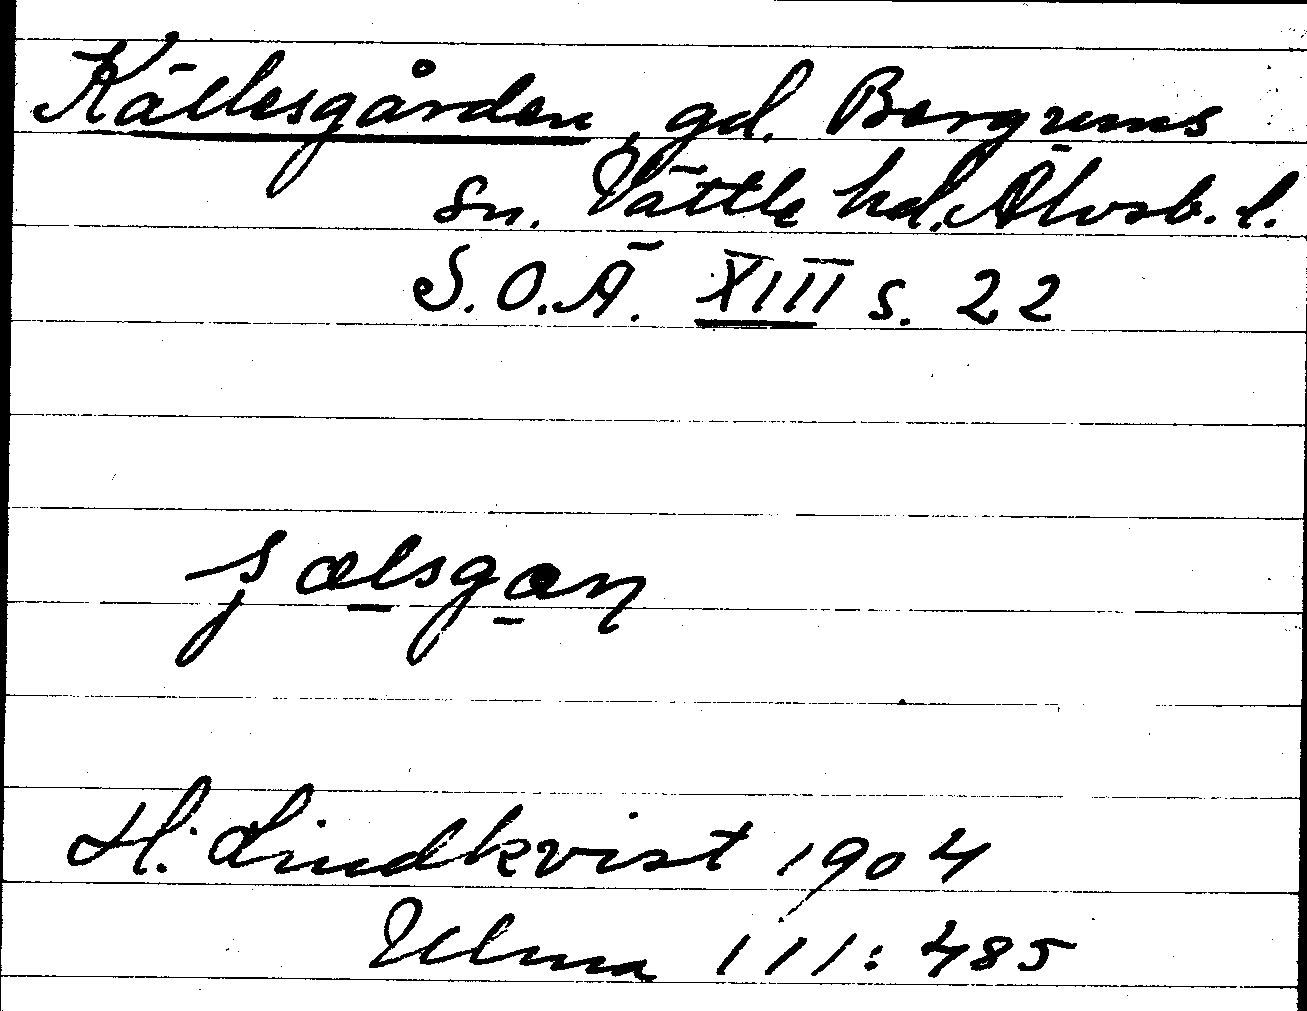 Källesgården, gd. Bergums
sn. Vättle hd. Älvsb. l.
S.O.Ä. XIII s. 22
H. Lindkvist 1904
Ulma 111:485